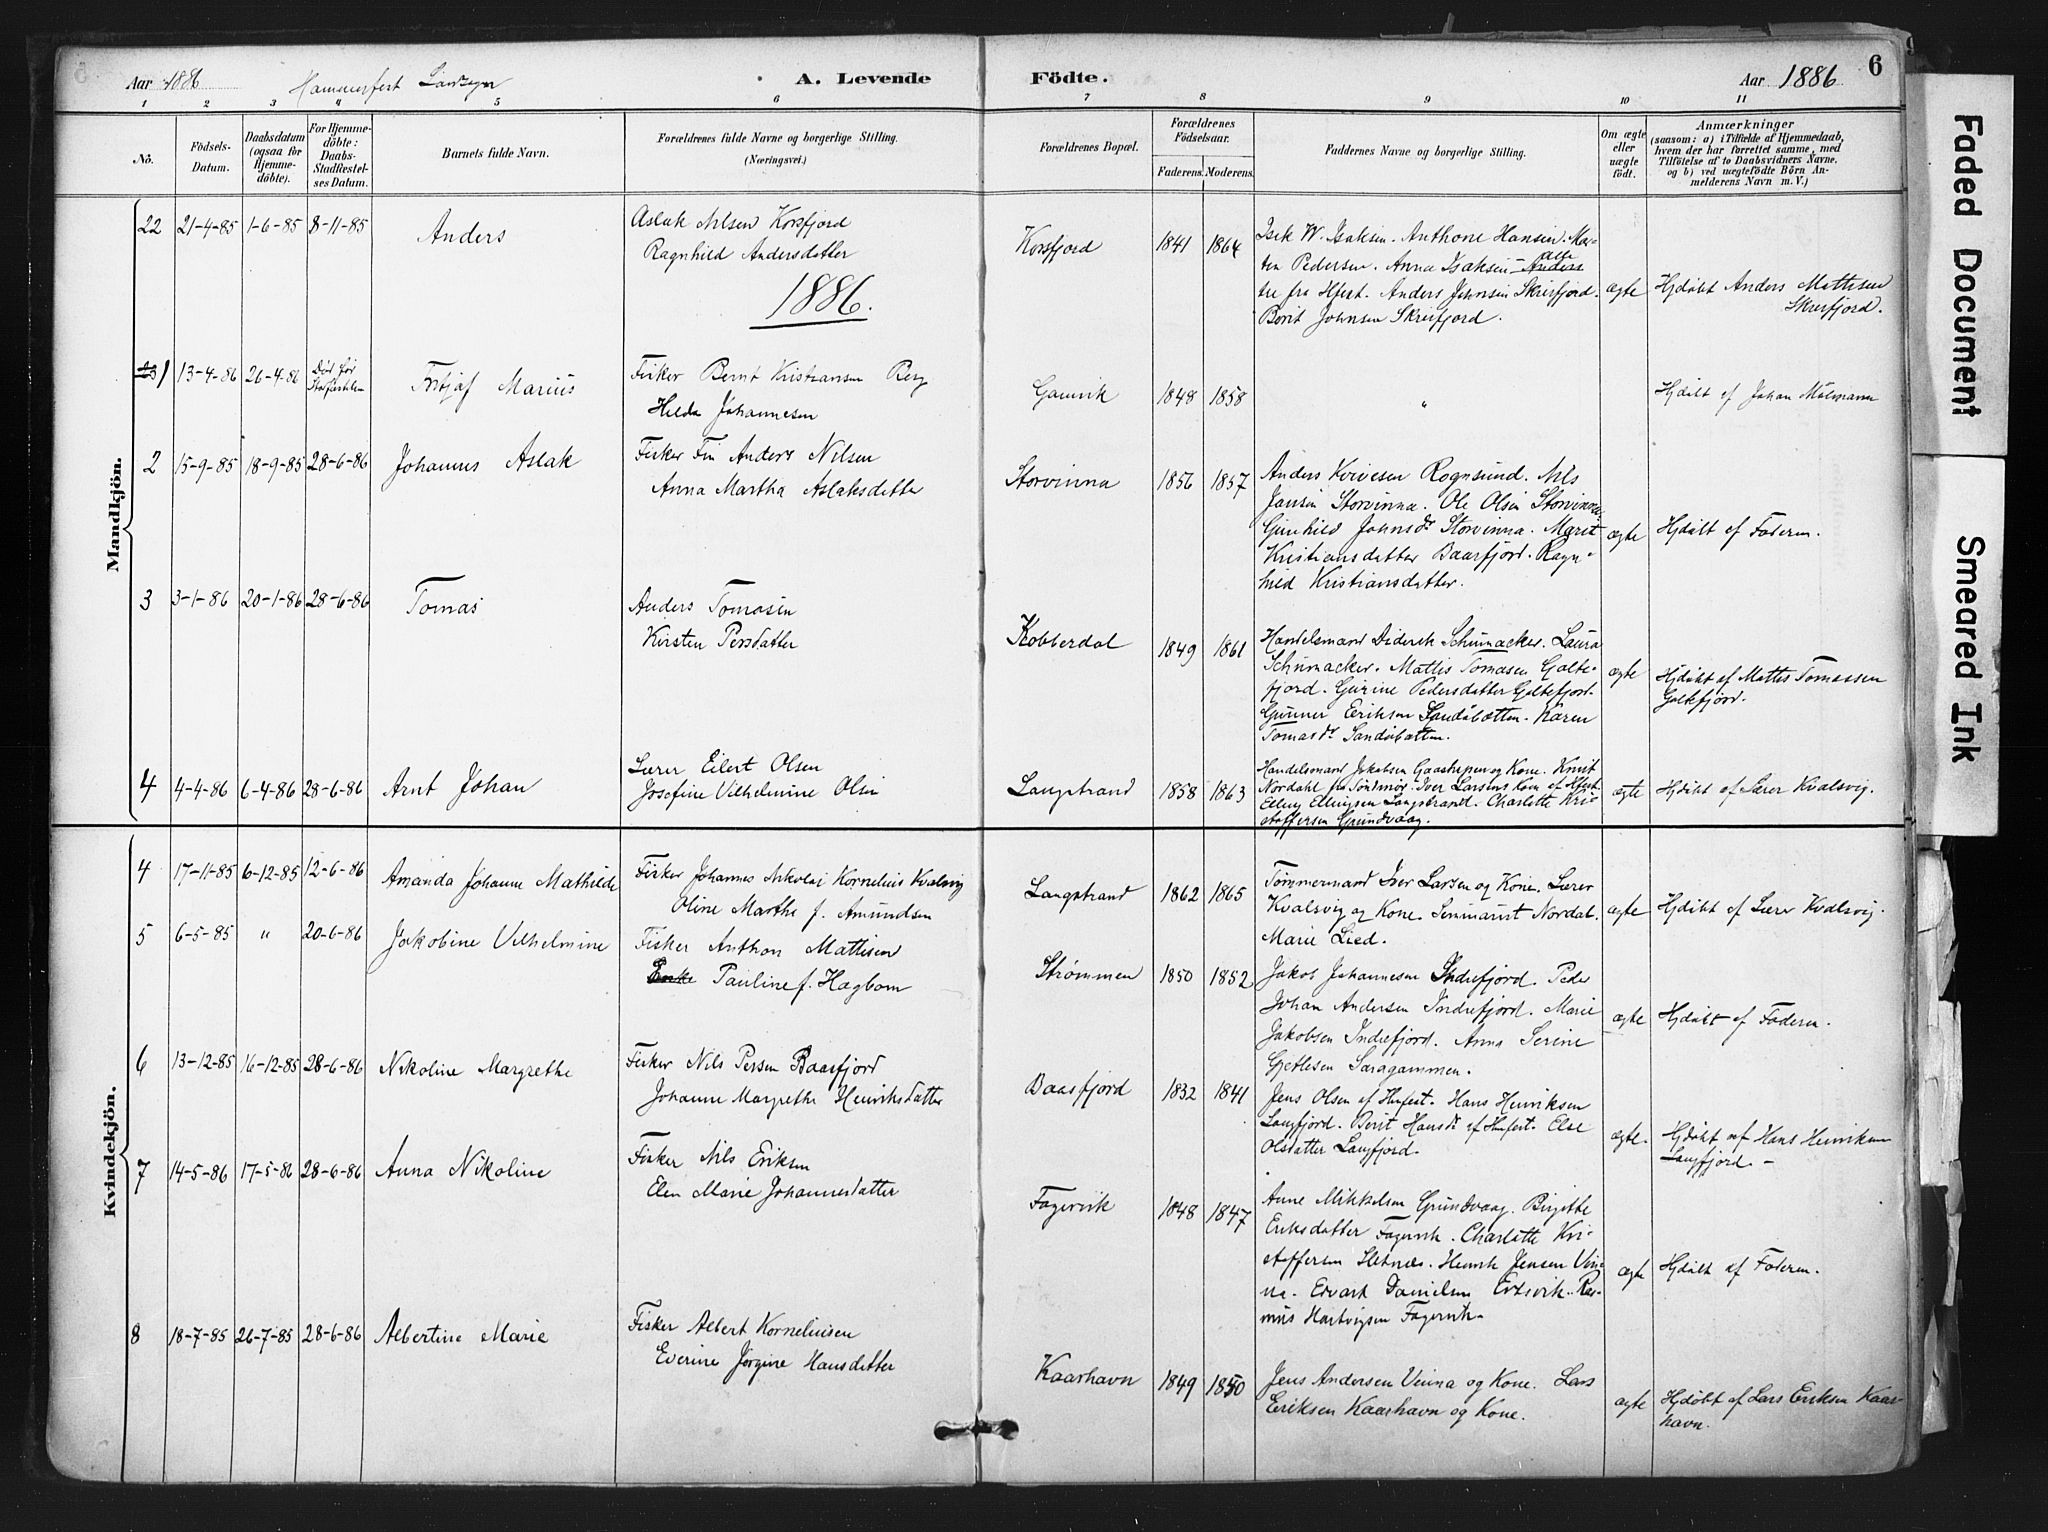 Aar 1886 Hammerfest Landsogn A. Levende Födte. Aar 1886 6
1 2 3 4 5 6 7 8 9 10 11
No.
Födsels-
Datum.
Daabsdatum
(ogsaa for
Hjemme-
döbte).
For Hjemme-
döbte:
Daabs-
Stadfæstel-
ses Datum.
Barnets fulde Navn.
Forældrenes fulde Navne og borgerlige Stilling.
(Næringsvei.)
Forældrenes Bopæl.
Forældrenes
Födselsaar.
Faderens. Moderens.
Faddernes Navne og borgerlige Stilling.
Om ægte
eller
uægte
födt.
Anmærkninger
(saasom: a) i Tilfælde af Hjemmedaab,
hvem der har forrettet samme, med
Tilföielse af to Daabsvidners Navne.
og b) ved uægtefödte Börn An-
melderens Navn m. V.)
Mandkjön.
22 21-4-85 1-6-85 8-11-85 Anders
Aslak Nilsen Korsfjord
Ragnhild Andersdatter
Korsfjord 1841 1864
Isak W. Isaksen. Anthone Hansen. Mar-
ten Pedersen. Anna Isaksen
fra Hfest. Anders Johnsen Skreifjord.
Berit Johnsen Skreifjord.
ægte
Hjdøbt Anders Mathisen
Skreifjord.
1886.
1 13-4-86 26-4-86 Død før Stadfæstelsen Fritjof Marius
Fisker Bernt Kristiansen Berg
Hilda Johannesen
Gamvik 1848 1858 "
Hjdøbt af Johan
2 15-9-85 18-9-85 28-6-86 Johannes Aslak
Fisker Fin Anders Nilsen
Anna Martha Aslaksdatter
Storvinna 1856 1857
Anders Kvivesen Rognsund. Nils
Jansen Storvinna. Ole Olsen Storvinna.
Gunhild Johnsdr Storvinna. Maret
Kristiansdatter Baarfjord. Ragn-
hild Kristiansdatter.
ægte
Hjdøbt af Faderen.
3 3-1-86 20-1-86 28-6-86 Tomas
Anders Tomasen
Kirsten Persdatter
Kobberdal 1849 1861
Handelsmand Diderik Schumacker. Laura
Schumacker. Mattis Tomasen Galte-
fjord. Gurine Pedersdatter Galtefjord.
Gunner Eriksen Sandøbotten. Karen
Tomasdr Sandøbotten.
ægte
Hjdøbt af Mattis Tomassen
Galtefjord.
4 4-4-86 6-4-86 28-6-86 Arnt Johan
Lærer Eilert Olsen
Josefine Vilhelmine Olsen
Langstrand 1858 1863
Handelsmand Jakobsen Gaashopen og Kone. Knut
Nordahl fra Søndmør. Iver Larsens Kone af Hfest.
Elling Ellingsen Langstrand. Charlotte Kri-
stoffersen Grundvaag.
ægte
Hjdøbt af Lærer Kvalsvig.
Kvindekjön.
4 17-11-85 6-12-85 12-6-86 Amanda Johanne Mathilde
Fisker Johannes Nikolai Kornelius Kvalsvig
Oline Martha f. Amundsen
Langstrand 1862 1865
Tømmermand Iver Larsen og Kone. Lærer
Kvalsvig og Kone. Seminarist Nordal.
Marie Lied.
ægte
Hjdøbt af Lærer Kvalsvig.
5 6-5-85 " 20-6-86 Jakobine Vilhelmine
Fisker Anthon Mattisen
Pauline f. Hagbom
Strømmen 1850 1852
Jakob Johannesen Indrefjord. Peder
Johan Andersen Indrefjord. Marie
Jakobsen Indrefjord. Anna Serine
Gjetlesen Saragammen.
ægte
Hjdøbt af Faderen.
6 13-12-85 16-12-85 28-6-86 Nikoline Margrethe
Fisker Nils Persen Baasfjord
Johanne Margrethe Henriksdatter
Baasfjord 1832 1841
Jens Olsen af Hmfest. Hans Henriksen
Langfjord. Berit Hansdr af Hmfest. Else
Olsdatter Langfjord.
ægte.
Hjdøbt af Hans Henriksen
Langfjord.-
7 14-5-86 17-5-86 28-6-86 Anna Nikoline
Fisker Nils Eriksen
Elen Marie Johannesdatter
Fagervik 1848 1847
Anne Mikkelsen Grundvaag. Birgitte
Eriksdatter Fagervik. Charlotte Kri-
stoffersen Sletnæs. Henrik Jensen Vin-
na. Edvart Danielsen Eidsvik. Ras-
mus Hartvigsen Fagervik.
ægte
Hjdøbt af Faderen.
8 18-7-85 26-7-85 28-6-86 Albertine Marie
Fisker Albert Korneliusen
Everine Jørgine Hansdatter
Kaarhavn 1849 1850
Jens Andersen Vinna og Kone. Lars
Eriksen Kaarhavn og Kone.
ægte
Hjdøbt af Lars Eriksen Kaar-
havn.
Faded Document
Smeared Ink